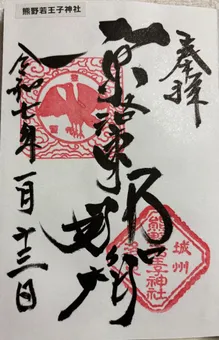 熊野若王子神社
奉拝
京洛東
那智
令和七年一月十三日
城州
熊野若王子神社